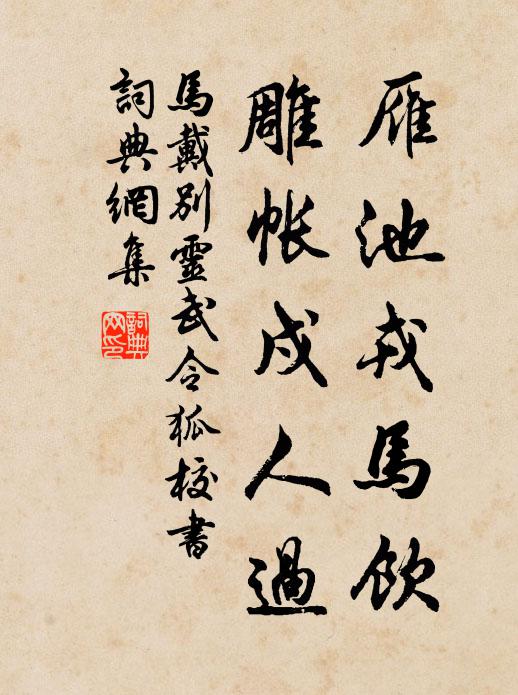 雁池戎馬飲
雕帳戍人過
馬戴別靈武令狐校書
詞典網集
詞典網印